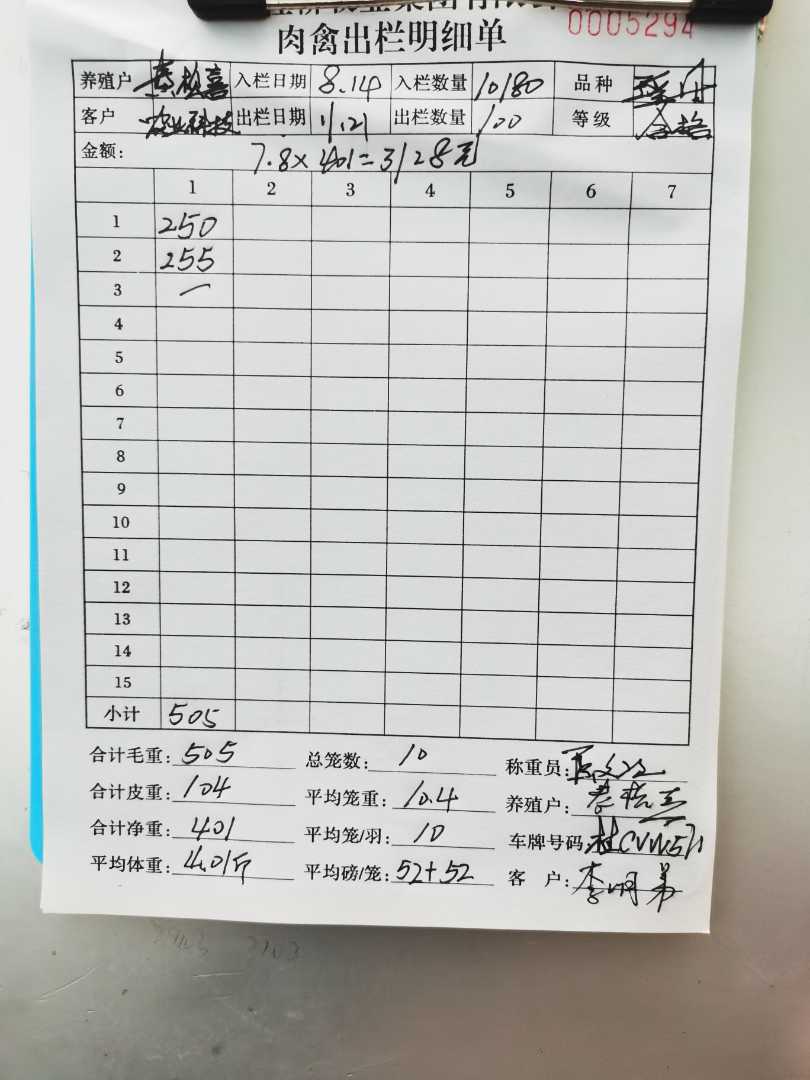 集团有限
0005294
肉禽出栏明细单
养殖户 入栏日期 8.14 入栏数量 10180 品种
客户 农业科技 出栏日期 11.21 出栏数量 100 等级 合格
金额: 7.8×401=3128元
1 2 3 4 5 6 7
1 250
2 255
3 一
4
5
6
7
8
9
10
11
12
13
14
15
小计 505
合计毛重: 505 总笼数: 10 称重员:
合计皮重: 104 平均笼重: 10.4 养殖户:
合计净重: 401 平均笼/羽: 10 车牌号码: 桂CVW571
平均体重: 4.01斤 平均磅/笼: 52+52 客 户: 李明弟